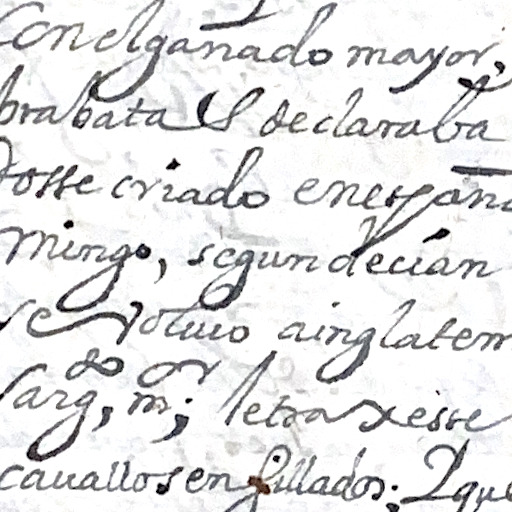 con el ganado mayor,
brabata S declaraba
dosse criado en españa
mingo, segun decian
se Voluio a inglaterr
sarg.do, m.or; le traxesse
cauallos en sillados; Y que